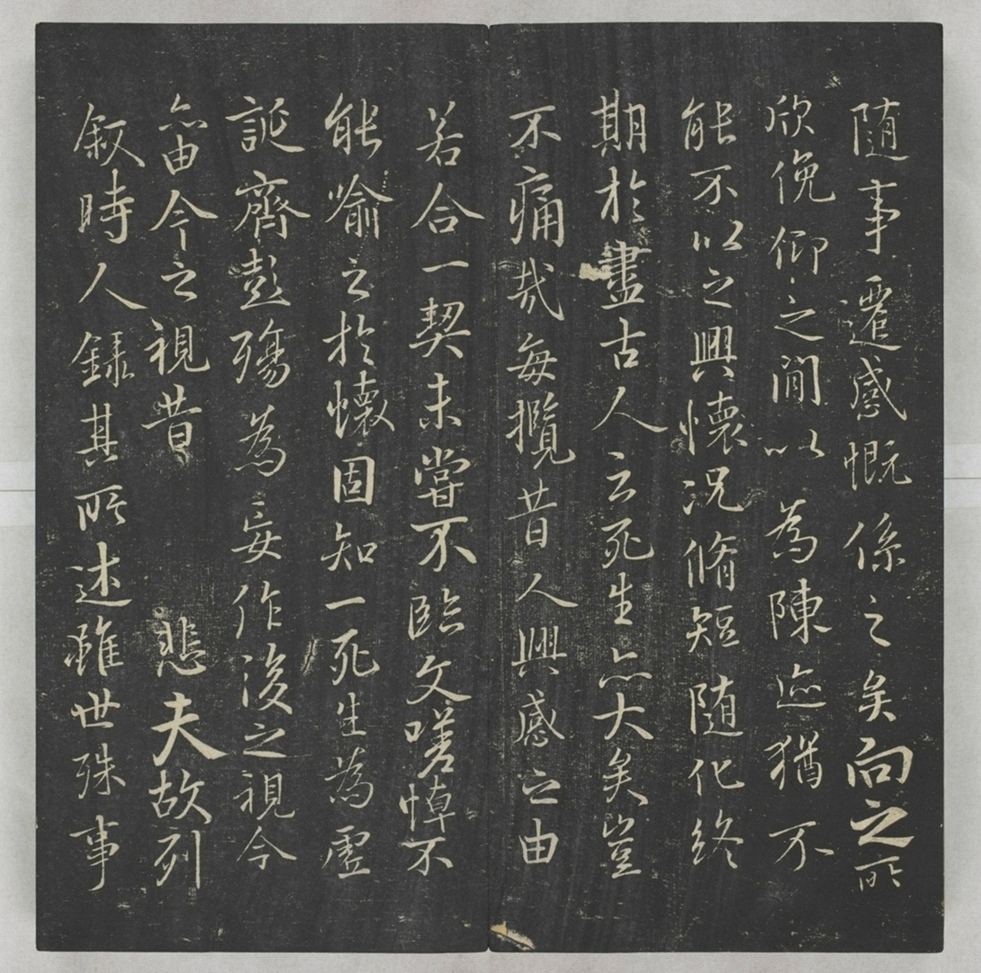 随事遷感慨係之矣向之所
欣俛仰之閒以為陳迹猶不
能不以之興懷況脩短随化終
期於盡古人云死生亦大矣豈
不痛哉每攬昔人興感之由
若合一契未嘗不臨文嗟悼不
能喻之於懷固知一死生為虚
誕齊彭殤為妄作後之視今
亦由今之視昔 悲夫故列
叙時人録其所述雖世殊事